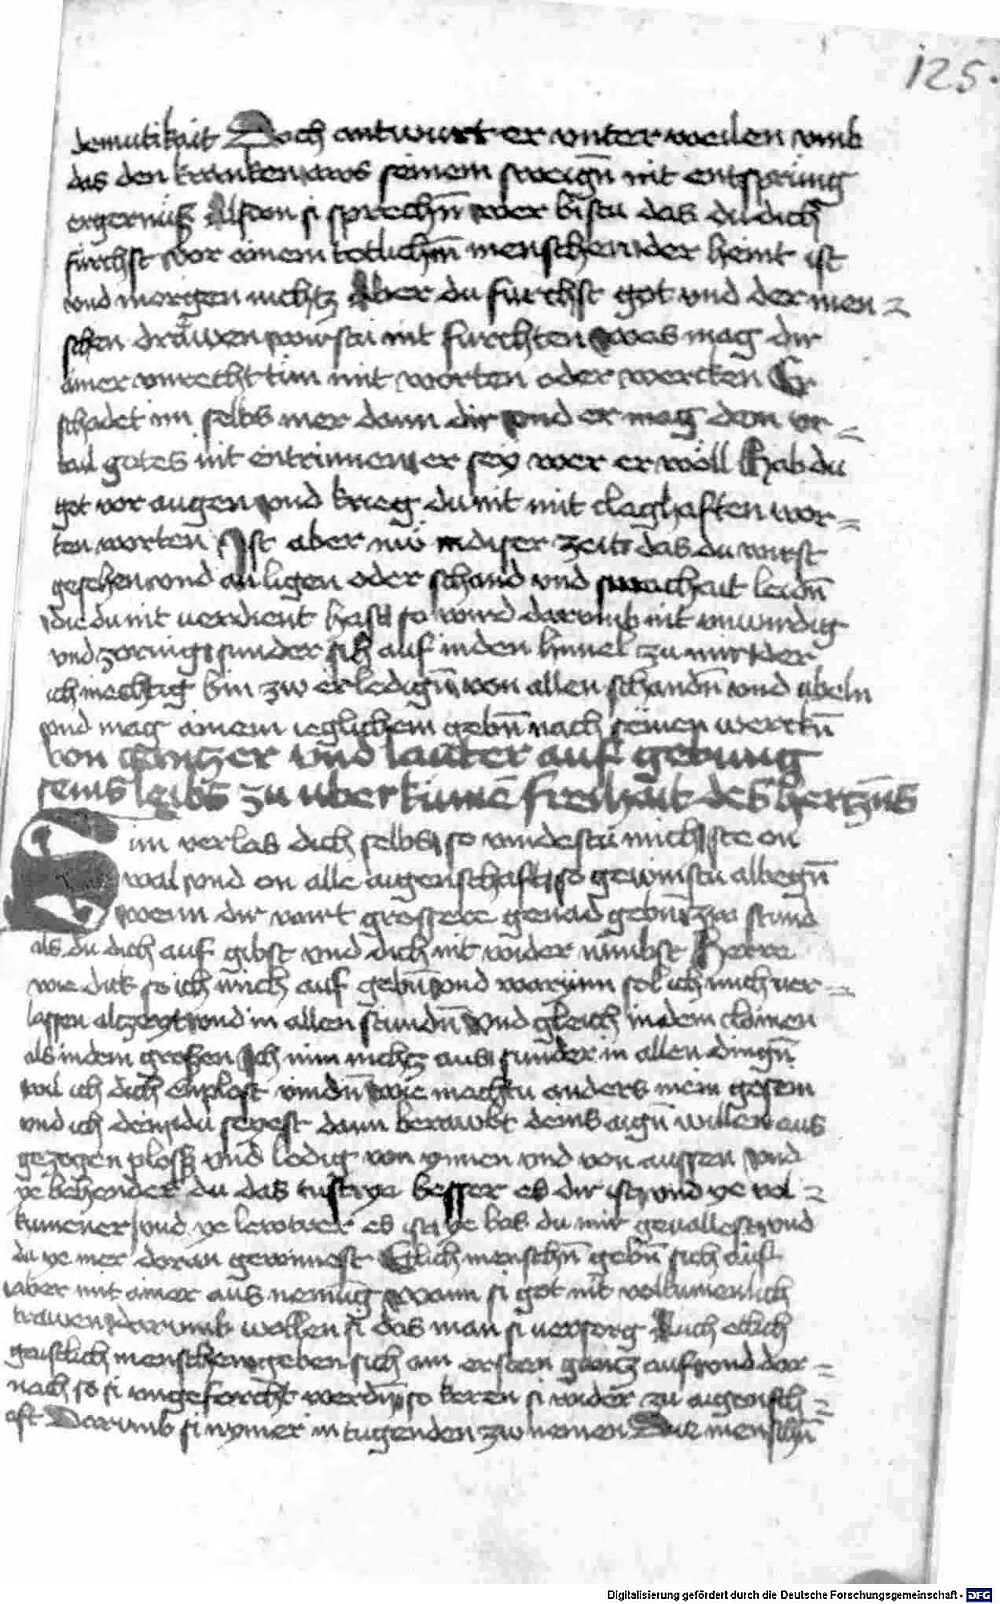 125.
demutikait Doch antwurt er vnter weilen vmb
das den krancken aws seinem sweigñ nit entspring
ergernüß Alsdan si sprechñ wer bistu das du dich
fürchst vor ainem totlichen menschen der heint ist
vnd morgen nichtz Aber du fürchst got vnd der men=
schen dräwen wirstu nit fürchten was mag dir
ainer vnrecht tün mit worten oder wercken Er
schadet im selbs mer dann dir vnd er mag dem vr=
tail gotes nit entrinnen er sey wer er wöll Hab du
got vor augen vnd krieg du nit mit claghaften wor=
ten worten Ist aber nw in diser zeit das du wirst
gesehen vnd an ligen oder schand vnd swachait leidñ
die du nit uerdient hast so wird darumb nit vnwirdig
vnd zornig sunder sich auf in den himel zu mir der
ich mechtig bin zw erledigñ von allen schandñ vnd übeln
vnd mag ainem ieglichem gebñ nach seinen werckñ
von gantzer vnd lauter auf gebung
seins leibs zu uberkumē freihait des hertzñs
Sun verlas dich selbs so vindestu mich Ste on
wal vnd on alle aigenschaft so gewinstu albegñ
wenn dir wirt grossere genad gebñ zw stund
als du dich auf gibst vnd dich nit wider nimbst Herre
wie dick so ich mich auf gebñ vnd warinn sol ich mich ver=
lassen alczeyt vnd in allen stundñ vnd gleich in dem clainen
als in dem großen Ich nim nichtz aus sunder in allen dingñ
wil ich dich enplost vindñ wie machtu anders mein gesein
vnd ich dein du seyest dann berawbt deins aigñ willen aus
gezogen plosß vnd ledig von ynnen vnd von aussen vnd
ye behender du das tust ye besser es dir ist vnd ye vol=
kumener vnd ye lewtrer es ist ye bas du mir geuallest vnd
du ye mer daran gewinnest Etlich menschñ gebñ sich auf
aber mit ainer aus nemūg wann si got nit volkumenlich
trawen darumb wollen si das man si uersorg Auch etlich
geistlich menschen geben sich am ersten gantz auf vnd dar=
nach so si angefocht werdñ so keren si wider zu aigensch=
aft Darumb si nymer in tugenden zw nemen Die menschñ
Digitalisierung gefördert durch die Deutsche Forschungsgemeinschaft - DFG